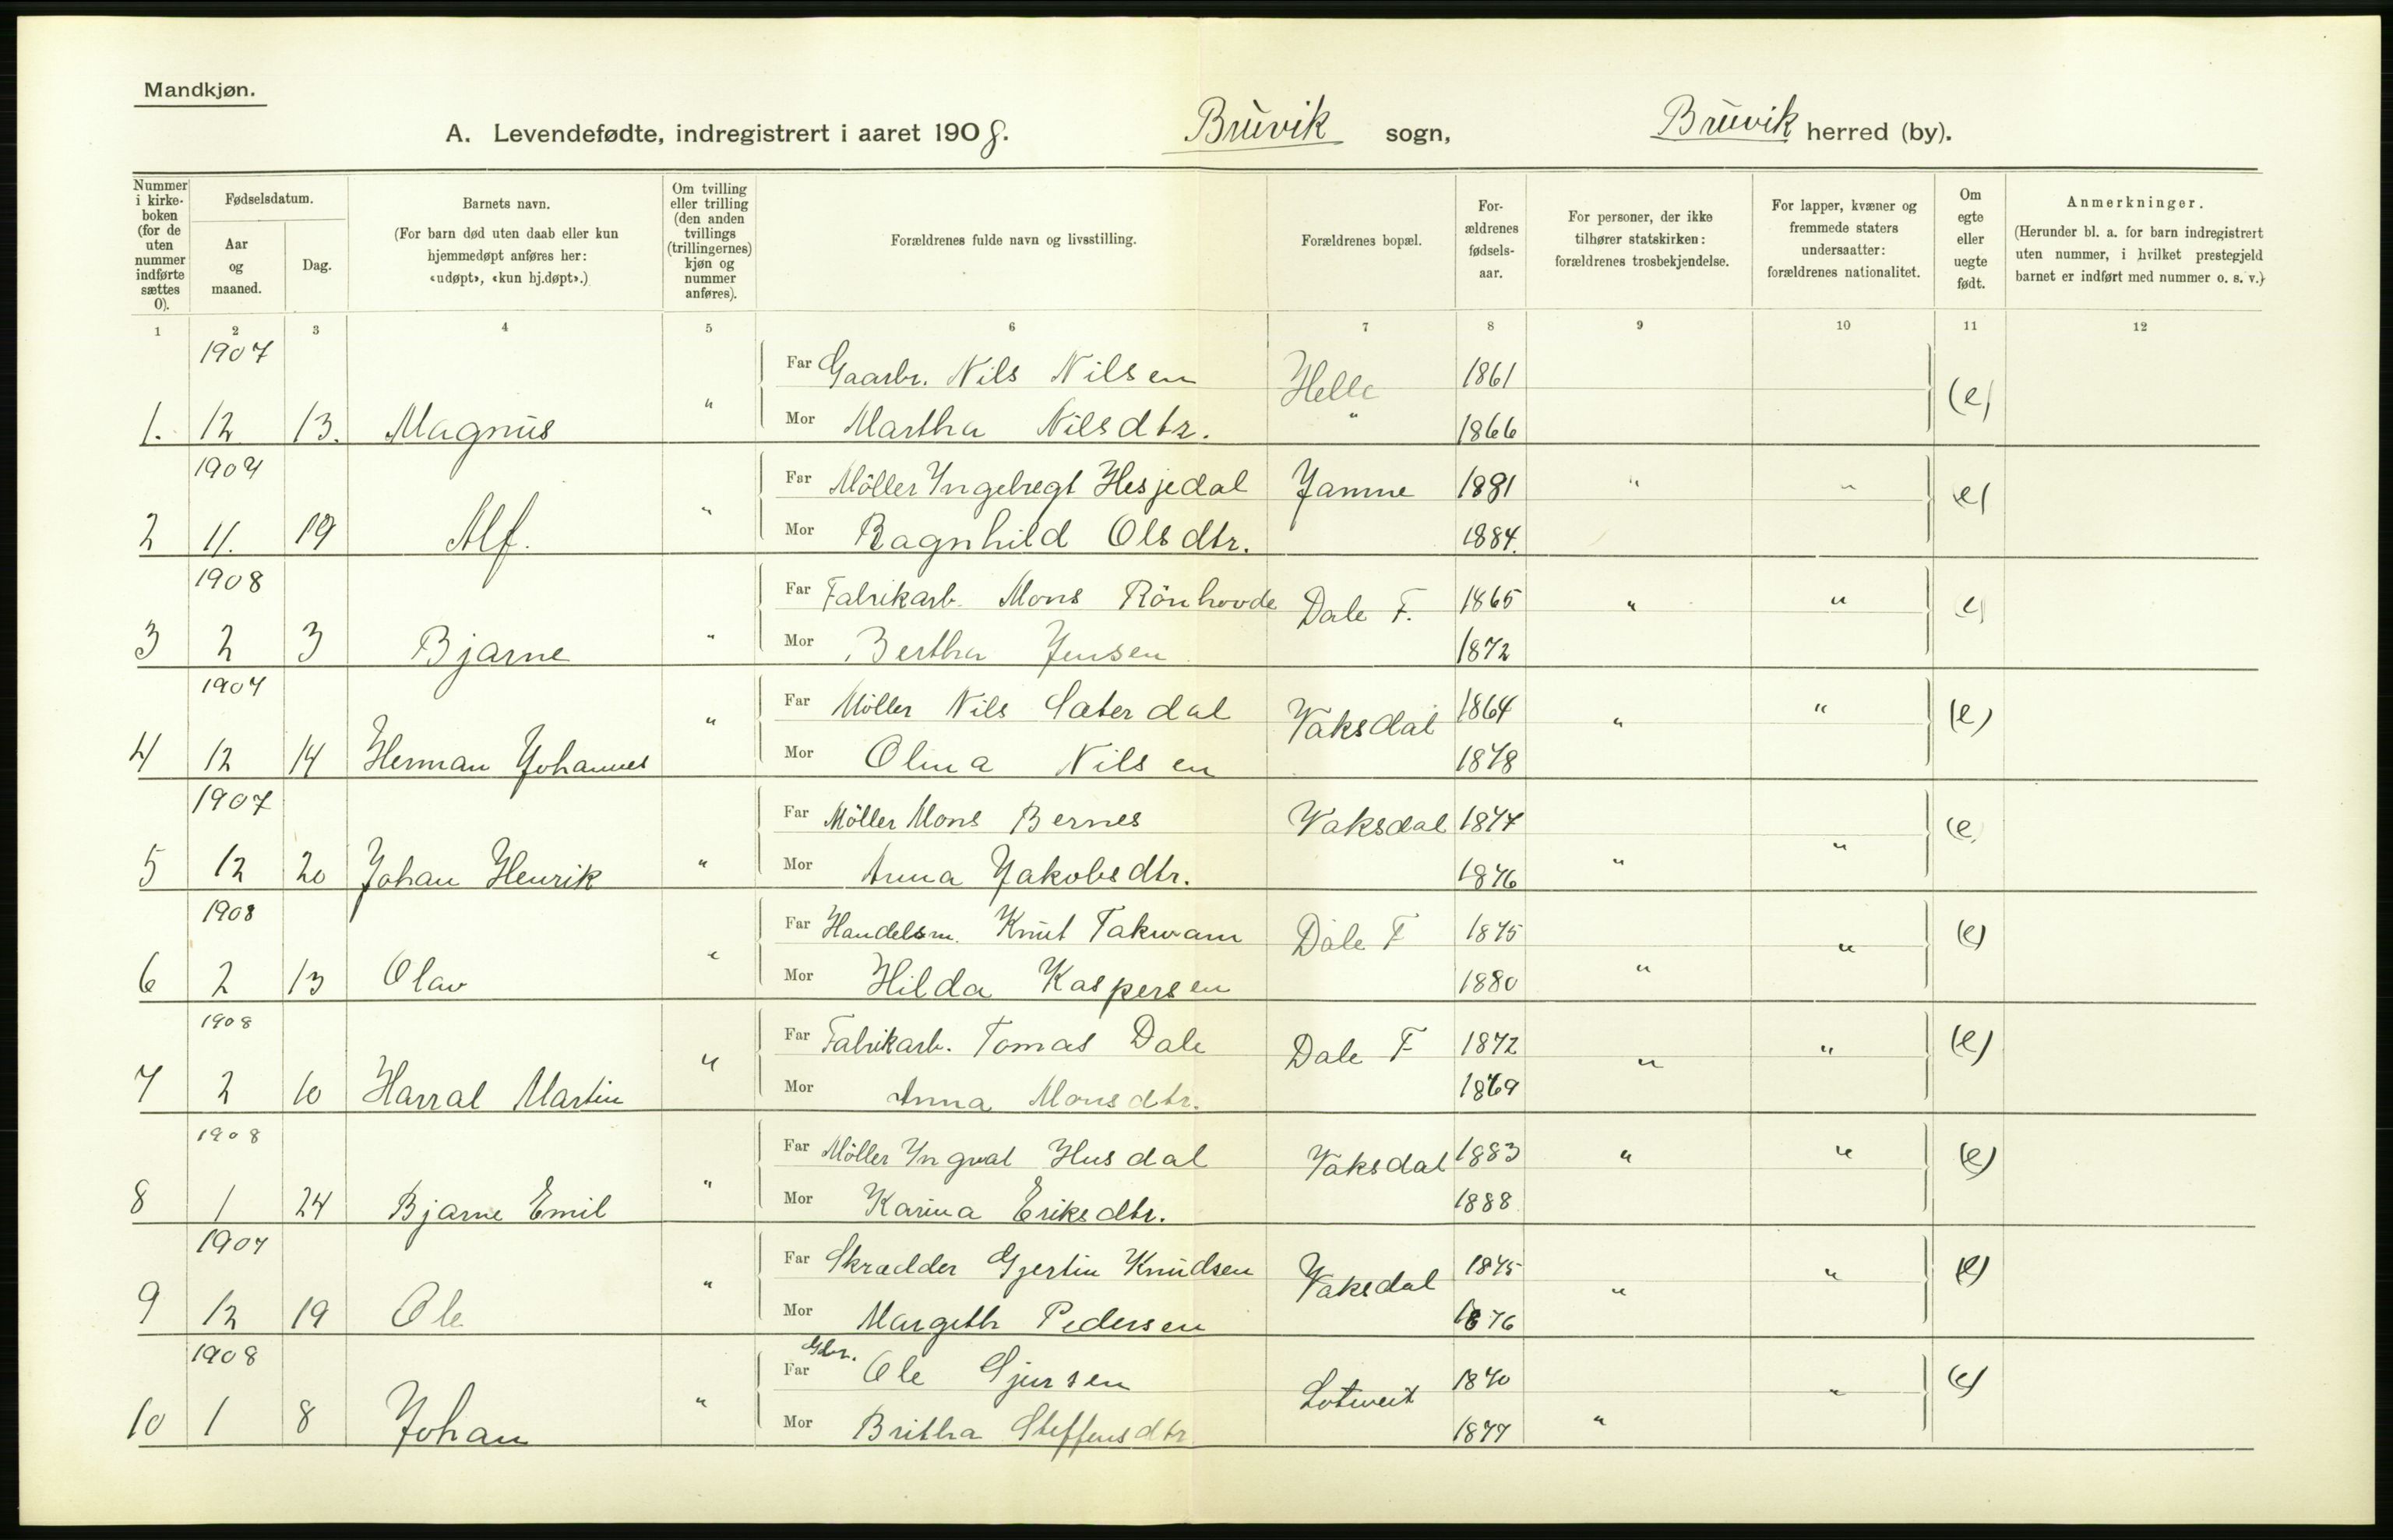 Mandkjøn.
A. Levendefødte, indregistrert i aaret 1908. Bruvik sogn, Bruvik herred (by).
Nummer i kirke-boken (for de uten nummer indførte sættes 0).
Fødselsdatum.
Aar og maaned.
Dag.
Barnets navn.
(For barn død uten daab eller kun hjemmedøpt anføres her: «udøpt», «kun hj.døpt».)
Om tvilling eller trilling (den anden tvillings (trillingernes) kjøn og nummer anføres).
Forældrenes fulde navn og livsstilling.
Forældrenes bopæl.
For-ældrenes fødsels-aar.
For personer, der ikke tilhører statskirken: forældrenes trosbekjendelse.
For lapper, kvæner og fremmede staters undersaatter: forældrenes nationalitet.
Om egte eller uegte født.
Anmerkninger.
(Herunder bl. a. for barn indregistrert uten nummer, i hvilket prestegjeld barnet er indført med nummer o. s. v.)
1 2 3 4 5 6 7 8 9 10 11 12
1907 Far Gaarbr. Nils Nilsen Helle 1861 (e)
1. 12 13. Magnus " Mor Martha Nilsdtr. " 1866
1907 Far Möller Yngebregt Hesjedal Jamne 1881 " " e)
2 11. 19 Alf. " Mor Ragnhild Olsdtr. 1884.
1908 Far Fabrikarb. Mons Rönhovde Dale F. 1865 " " e)
3 2 3 Bjarne " Mor Bertha Jensen 1872
1907 Far Möller Nils Sæterdal Vaksdal 1864 " " (e)
4 12 14 Herman Johannes " Mor Olina Nilsen 1878
1907 Far Möller Mons Bernes Vaksdal 1877 (e
5 12 20 Johan Henrik " Mor Anna Jakobsdtr. 1876 " "
1908 Far Handelsm. Knut Takvam Dale F 1875 " (e)
6 2 13 Olav " Mor Hilda Kaspersen 1880 "
1908 Far Fabrikarb. Tomas Dale Dale F 1872 " " (e)
7 2 10 Harral Martin " Mor Anna Monsdtr. 1869
1908 Far Möller Yngval Husdal Vaksdal 1883 " " (e)
8 1 24 Bjarne Emil " Mor Karina Eriksdtr. 1888
1907 Far Skrædder Gjertin Knudsen Vaksdal 1875 " " (e)
9 12 19 Ole " Mor Margith Pedersen 1876
1908 Far Gbr. Ole Sjursen 1870 " (e)
10 1 8 Johan " Mor Britha Steffensdtr 1877 "